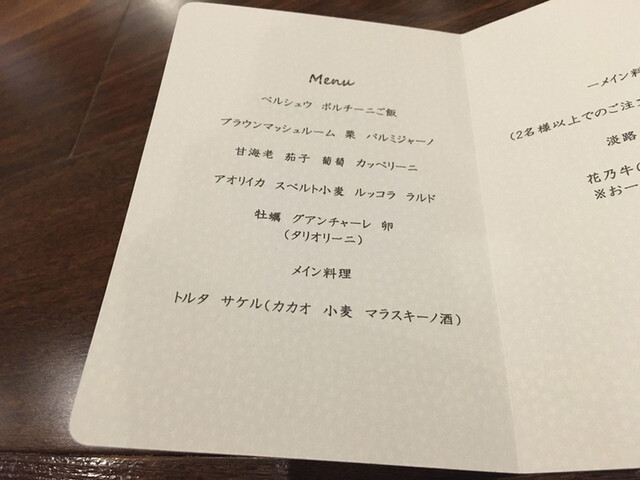 Menu
ペルシュウ ポルチーニご飯
ブラウンマッシュルーム 栗 パルミジャーノ
甘海老 茄子 葡萄 カッペリーニ
アオリイカ スペルト小麦 ルッコラ ラルド
牡蠣 グアンチャーレ 卵
(タリオリーニ)
メイン料理
トルタ サケル(カカオ 小麦 マラスキーノ酒)
ーメイン料
(2名様以上でのご注
淡路
花乃牛
※お一